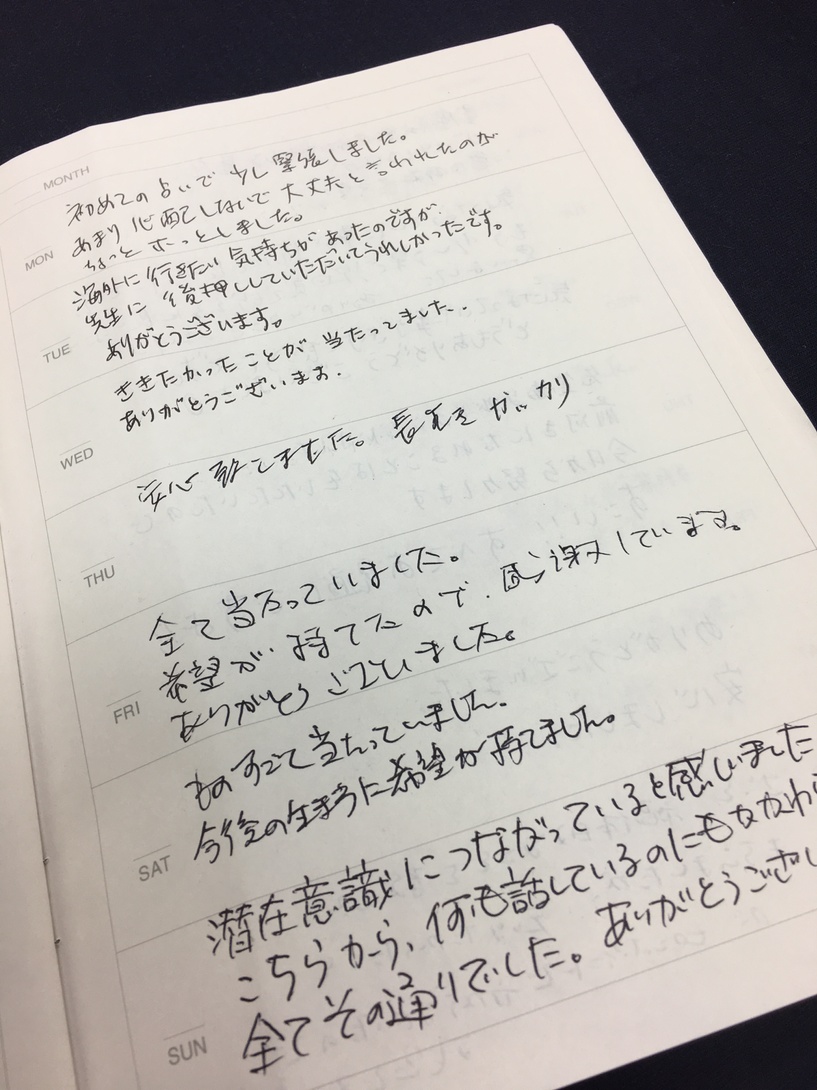 MONTH
初めての占いで少し緊張しました。
あまり心配しないで大丈夫と言われたのが
ちょっとホッとしました。
MON
海外に行きたい気持ちがあったのですが、
先生に後押ししていただいてうれしかったです。
ありがとうございます。
TUE
ききたかったことが当たってました.
ありがとうございます.
WED
安心致しました。長生き がっかり
THU
全て当たっていました。
希望が持てたので、感謝しています。
ありがとうございました。
FRI
ものすごく当たっていました。
今後の生き方に希望が持てました。
SAT
潜在意識につながっていると感じました
こちらから、何も話しているのにもかかわら
全てその通りでした。ありがとうござい
SUN